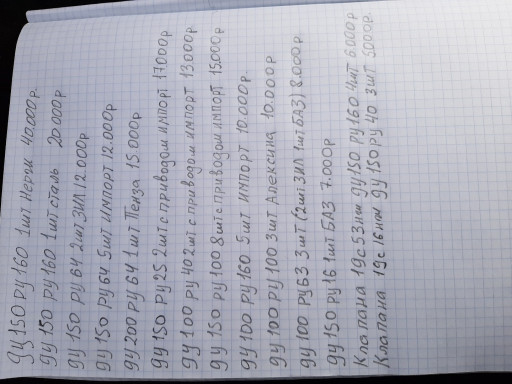 ду 150 ру 160 1шт Нерж 40.000р.
ду 150 ру 160 1шт сталь 20000р
ду 150 ру 64 2шт ЗИЛ 12000р
ду 150 ру 64 5шт импорт 12.000р
ду 200 ру 64 1шт Пенза 15.000р
ду 150 ру 25 2шт с приводом импорт 17000р
ду 100 ру 40 2шт с приводом импорт 13.000р
ду 150 ру 100 8шт с приводом импорт 15.000р
ду 100 ру 160 5шт импорт 10.000р
ду 100 ру 100 3шт Алексина 10.000р
ду 100 ру 63 3шт (2шт ЗИЛ 1шт БАЗ) 8.000р.
ду 150 ру 16 1шт БАЗ 7.000р
Клапана 19с53нж ду 150 ру 160 4шт 6.000р
Клапана 19с16нж ду 150 ру 40 3шт 5000р.